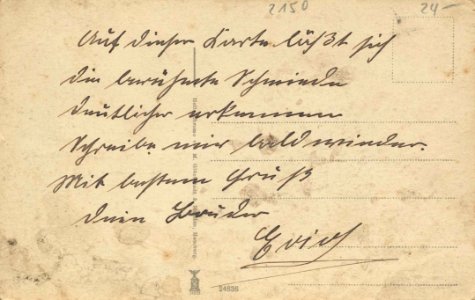 2150
24-
Auf dieser Karte läßt sich
die berühmte Schmiede
deutlicher erkennen
Schreibe mir bald wieder.
Mit bestem Gruß
dein Bruder
Erich
24936